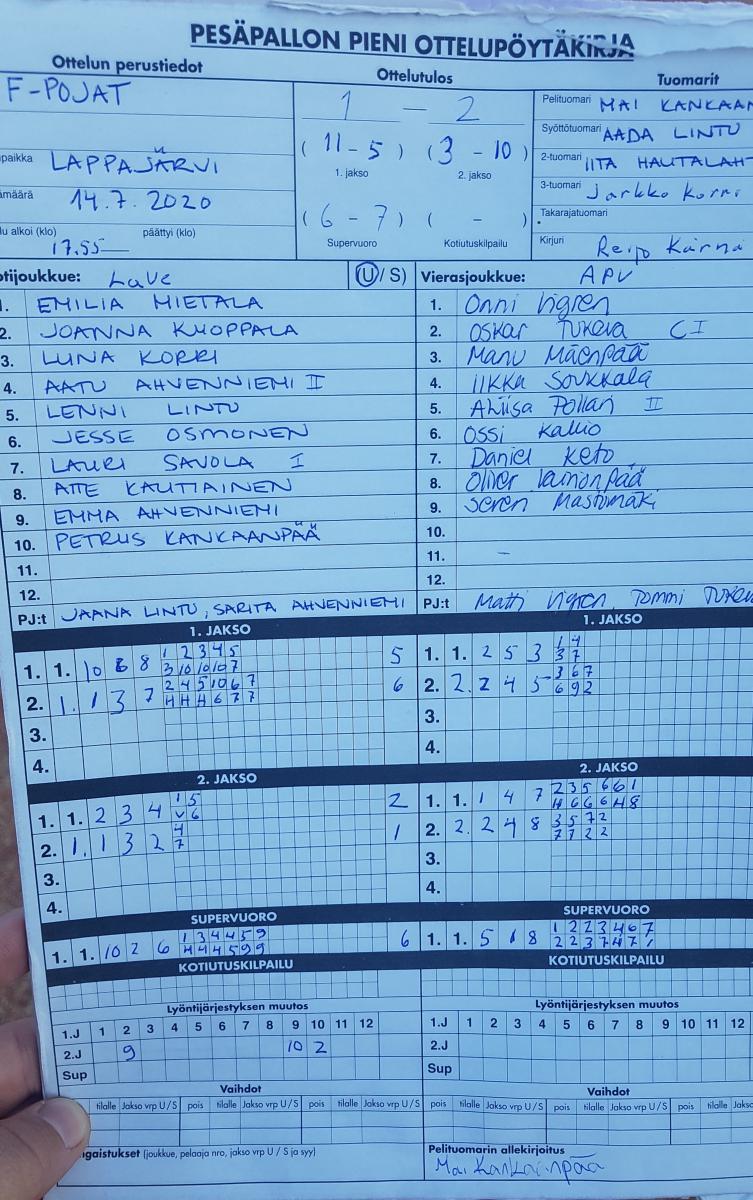 PESÄPALLON PIENI OTTELUPÖYTÄKIRJA
Ottelun perustiedot
Ottelutulos
Tuomarit
F-POJAT
1 - 2
(11-5) (3-10)
1. jakso 2. jakso
(6-7) ( - )
Supervuoro Kotiutuskilpailu
Pelituomari MAI KANKAAN
Syöttötuomari AADA LINTU
2-tuomari IITA HAUTALAHT
3-tuomari Jarkko Korri
Takarajatuomari
Kirjuri Reijo Kärnä
paikka LAPPAJÄRVI
määrä 14.7.2020
lu alkoi (klo) päättyi (klo)
17.55
tijoukkue: LaVe (U/S)
Vierasjoukkue: APV
1. EMILIA MIETALA
2. JOANNA KUOPPALA
3. LUNA KORRI
4. AATU AHVENNIEMI II
5. LENNI LINTU
6. JESSE OSMONEN
7. LAURI SAVOLA I
8. ATTE KAUTIAINEN
9. EMMA AHVENNIEMI
10. PETRUS KANKAANPÄÄ
11.
12.
PJ:t JAANA LINTU, SARITA AHVENNIEMI
1. Onni Vigren
2. Oskar Tukeva C I
3. Manu Mäenpää
4. Iikka Soukkala
5. Pollari II
6. Ossi Kallio
7. Daniel Keto
8. Oliver
9. Seren Mastomäki
10.
11. -
12.
PJ:t Matti Vigren, Tommi Tukev
1. JAKSO
1. 1. 10 6 8 1 2 3 4 5 5
3 10 10 10 7
2. 1. 1 3 7 2 4 5 10 6 7 6
4 4 4 6 7 7
3.
4.
1. JAKSO
1. 1. 2 5 3 1 4
3 7
2. 2. 2 4 5 3 6 7
6 9 2
3.
4.
2. JAKSO
1. 1. 2 3 4 1 5 2
V 6
2. 1. 1 3 2 4 1
7
3.
4.
2. JAKSO
1. 1. 1 4 7 2 3 5 6 6 1
4 6 6 6 4 8
2. 2. 2 4 8 3 5 7 2
7 7 2 2
3.
4.
SUPERVUORO
1. 1. 10 2 6 1 3 4 4 5 9 6
4 4 4 5 9 9
SUPERVUORO
1. 1. 5 1 8 1 2 2 3 4 6 7
2 2 3 7 4 7
KOTIUTUSKILPAILU
KOTIUTUSKILPAILU
Lyöntijärjestyksen muutos
1.J 1 2 3 4 5 6 7 8 9 10 11 12
2.J 9 10 2
Sup
Lyöntijärjestyksen muutos
1.J 1 2 3 4 5 6 7 8 9 10 11 12
2.J
Sup
Vaihdot
tilalle Jakso vrp U/S pois tilalle Jakso vrp U/S pois tilalle Jakso vrp U/S
Vaihdot
pois tilalle Jakso vrp U/S pois tilalle Jakso vrp U/S pois tilalle Jakso
ngaistukset (joukkue, pelaaja nro, jakso vrp U/S ja syy)
Pelituomarin allekirjoitus
Mai Kankaanpää